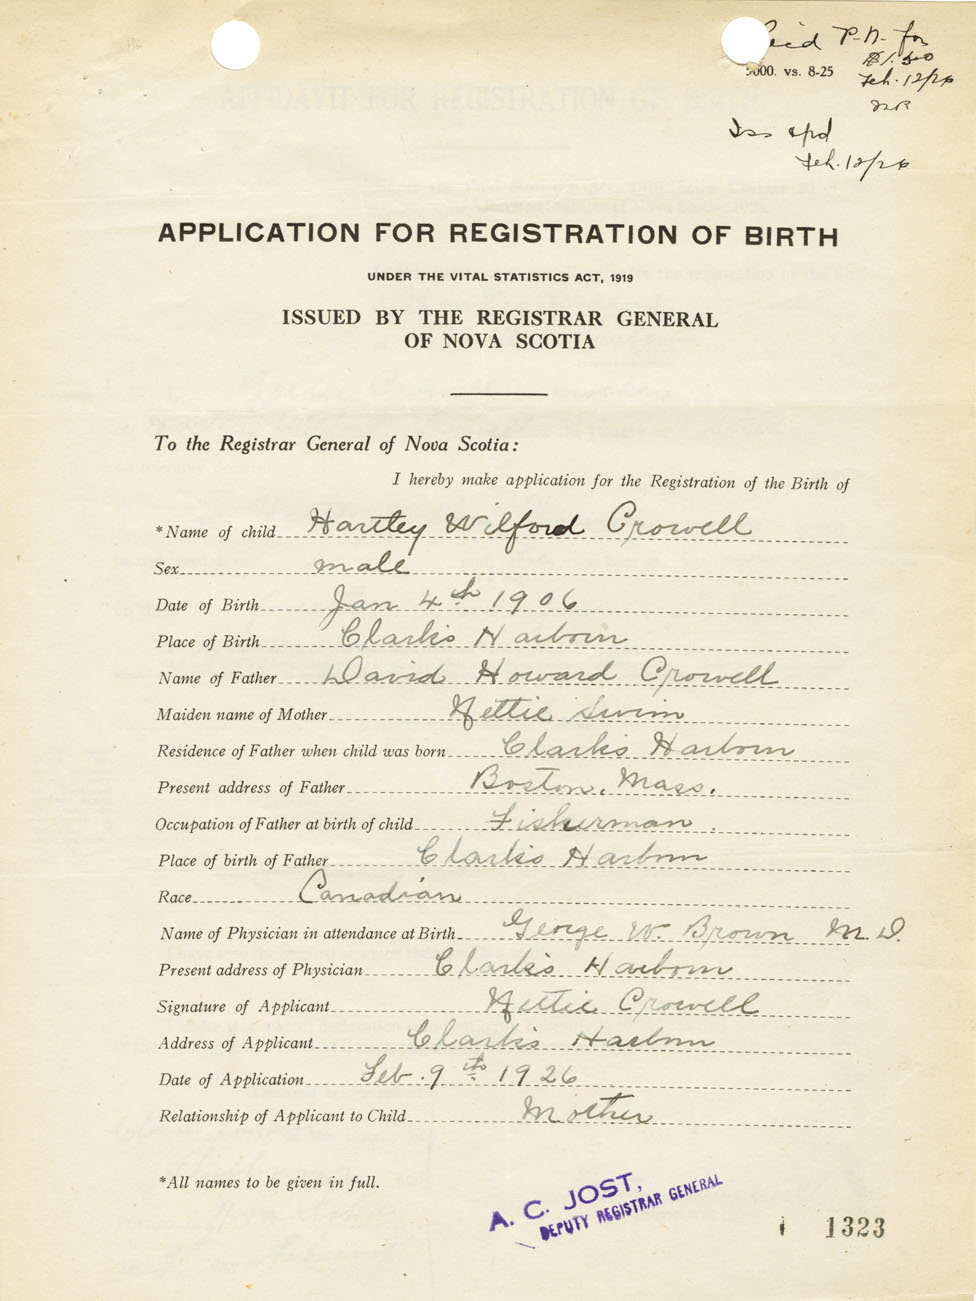 Rec'd P.N. for
$1.50
5000. vs. 8-25
Feb. 12/26
Iss cpd
Feb. 12/26
APPLICATION FOR REGISTRATION OF BIRTH
UNDER THE VITAL STATISTICS ACT, 1919
ISSUED BY THE REGISTRAR GENERAL
OF NOVA SCOTIA
To the Registrar General of Nova Scotia:
I hereby make application for the Registration of the Birth of
*Name of child Hartley Wilford Crowell
Sex male
Date of Birth Jan 4th 1906
Place of Birth Clark's Harbour
Name of Father David Howard Crowell
Maiden name of Mother Nettie Swim
Residence of Father when child was born Clark's Harbour
Present address of Father Boston, Mass.
Occupation of Father at birth of child Fisherman
Place of birth of Father Clark's Harbour
Race Canadian
Name of Physician in attendance at Birth George W. Brown M.D.
Present address of Physician Clark's Harbour
Signature of Applicant Nettie Crowell
Address of Applicant Clark's Harbour
Date of Application Feb. 9th 1926
Relationship of Applicant to Child Mother
*All names to be given in full.
A. C. JOST,
DEPUTY REGISTRAR GENERAL
1323